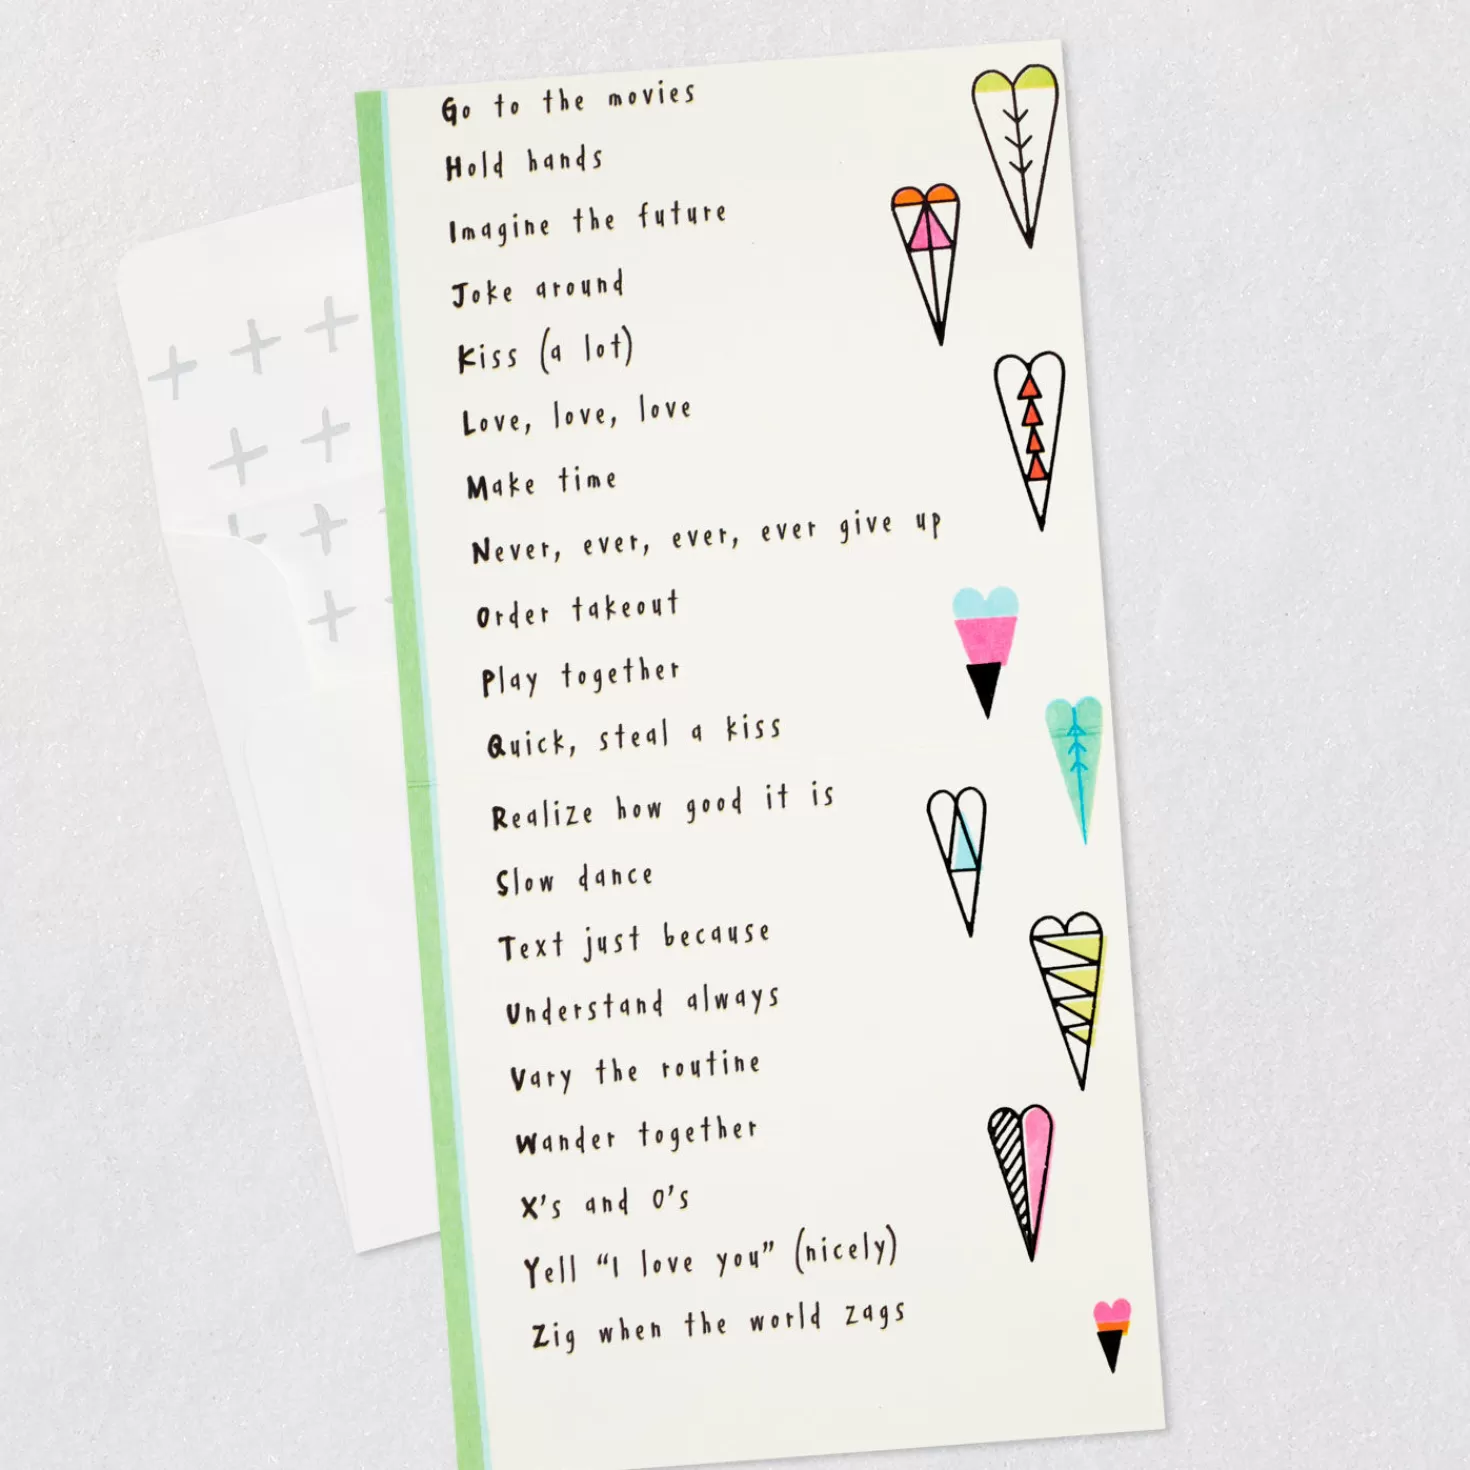 Go to the movies
Hold hands
Imagine the future
Joke around
Kiss (a lot)
Love, love, love
Make time
Never, ever, ever, ever give up
Order takeout
Play together
Quick, steal a kiss
Realize how good it is
Slow dance
Text just because
Understand always
Vary the routine
Wander together
X's and O's
Yell “I love you” (nicely)
Zig when the world zags